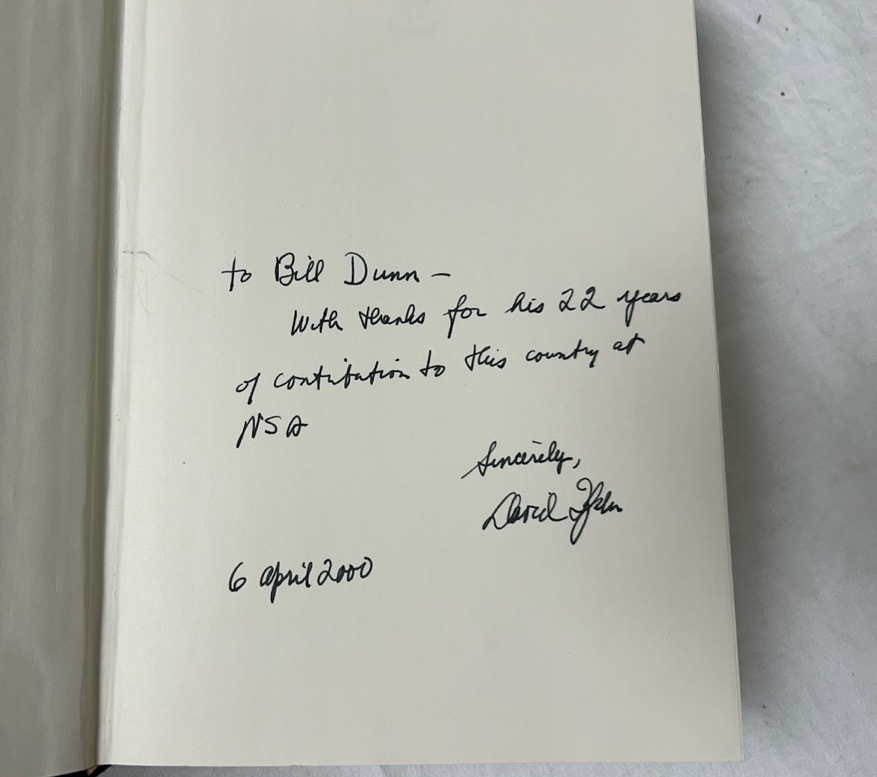 to Bill Dunn –
With thanks for his 22 years
of contribution to this country at
NSA
Sincerely,
David Kahn
6 april 2000